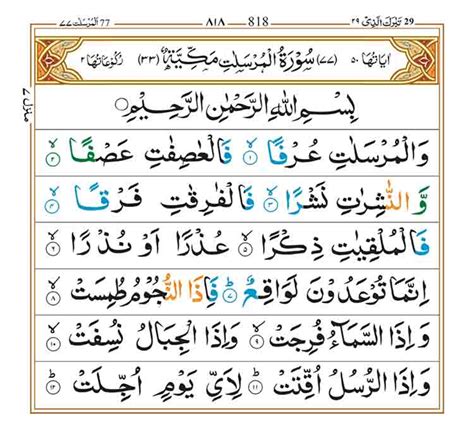 المرسلت ٧٧ 77 ٨١٨ 818 تبٰرک الذی ٢٩ 29
اٰیَاتُهَا ٥٠ (٧٧) سُوْرَةُ الْمُرْسَلٰتِ مَكِّیَّةٌ (٣٣) رُكُوْعَاتُهَا ٢
منزل ٧
بِسْمِ اللّٰهِ الرَّحْمٰنِ الرَّحِیْمِ
وَالْمُرْسَلٰتِ عُرْفًا ١ فَالْعٰصِفٰتِ عَصْفًا ٢
وَّالنّٰشِرٰتِ نَشْرًا ٣ فَالْفٰرِقٰتِ فَرْقًا ٤
فَالْمُلْقِیٰتِ ذِكْرًا ٥ عُذْرًا اَوْ نُذْرًا ٦
اِنَّمَا تُوْعَدُوْنَ لَوَاقِعٌ ٧ فَاِذَا النُّجُوْمُ طُمِسَتْ ٨
وَاِذَا السَّمَآءُ فُرِجَتْ ٩ وَاِذَا الْجِبَالُ نُسِفَتْ ١٠
وَاِذَا الرُّسُلُ اُقِّتَتْ ١١ لِاَیِّ یَوْمٍ اُجِّلَتْ ١٢